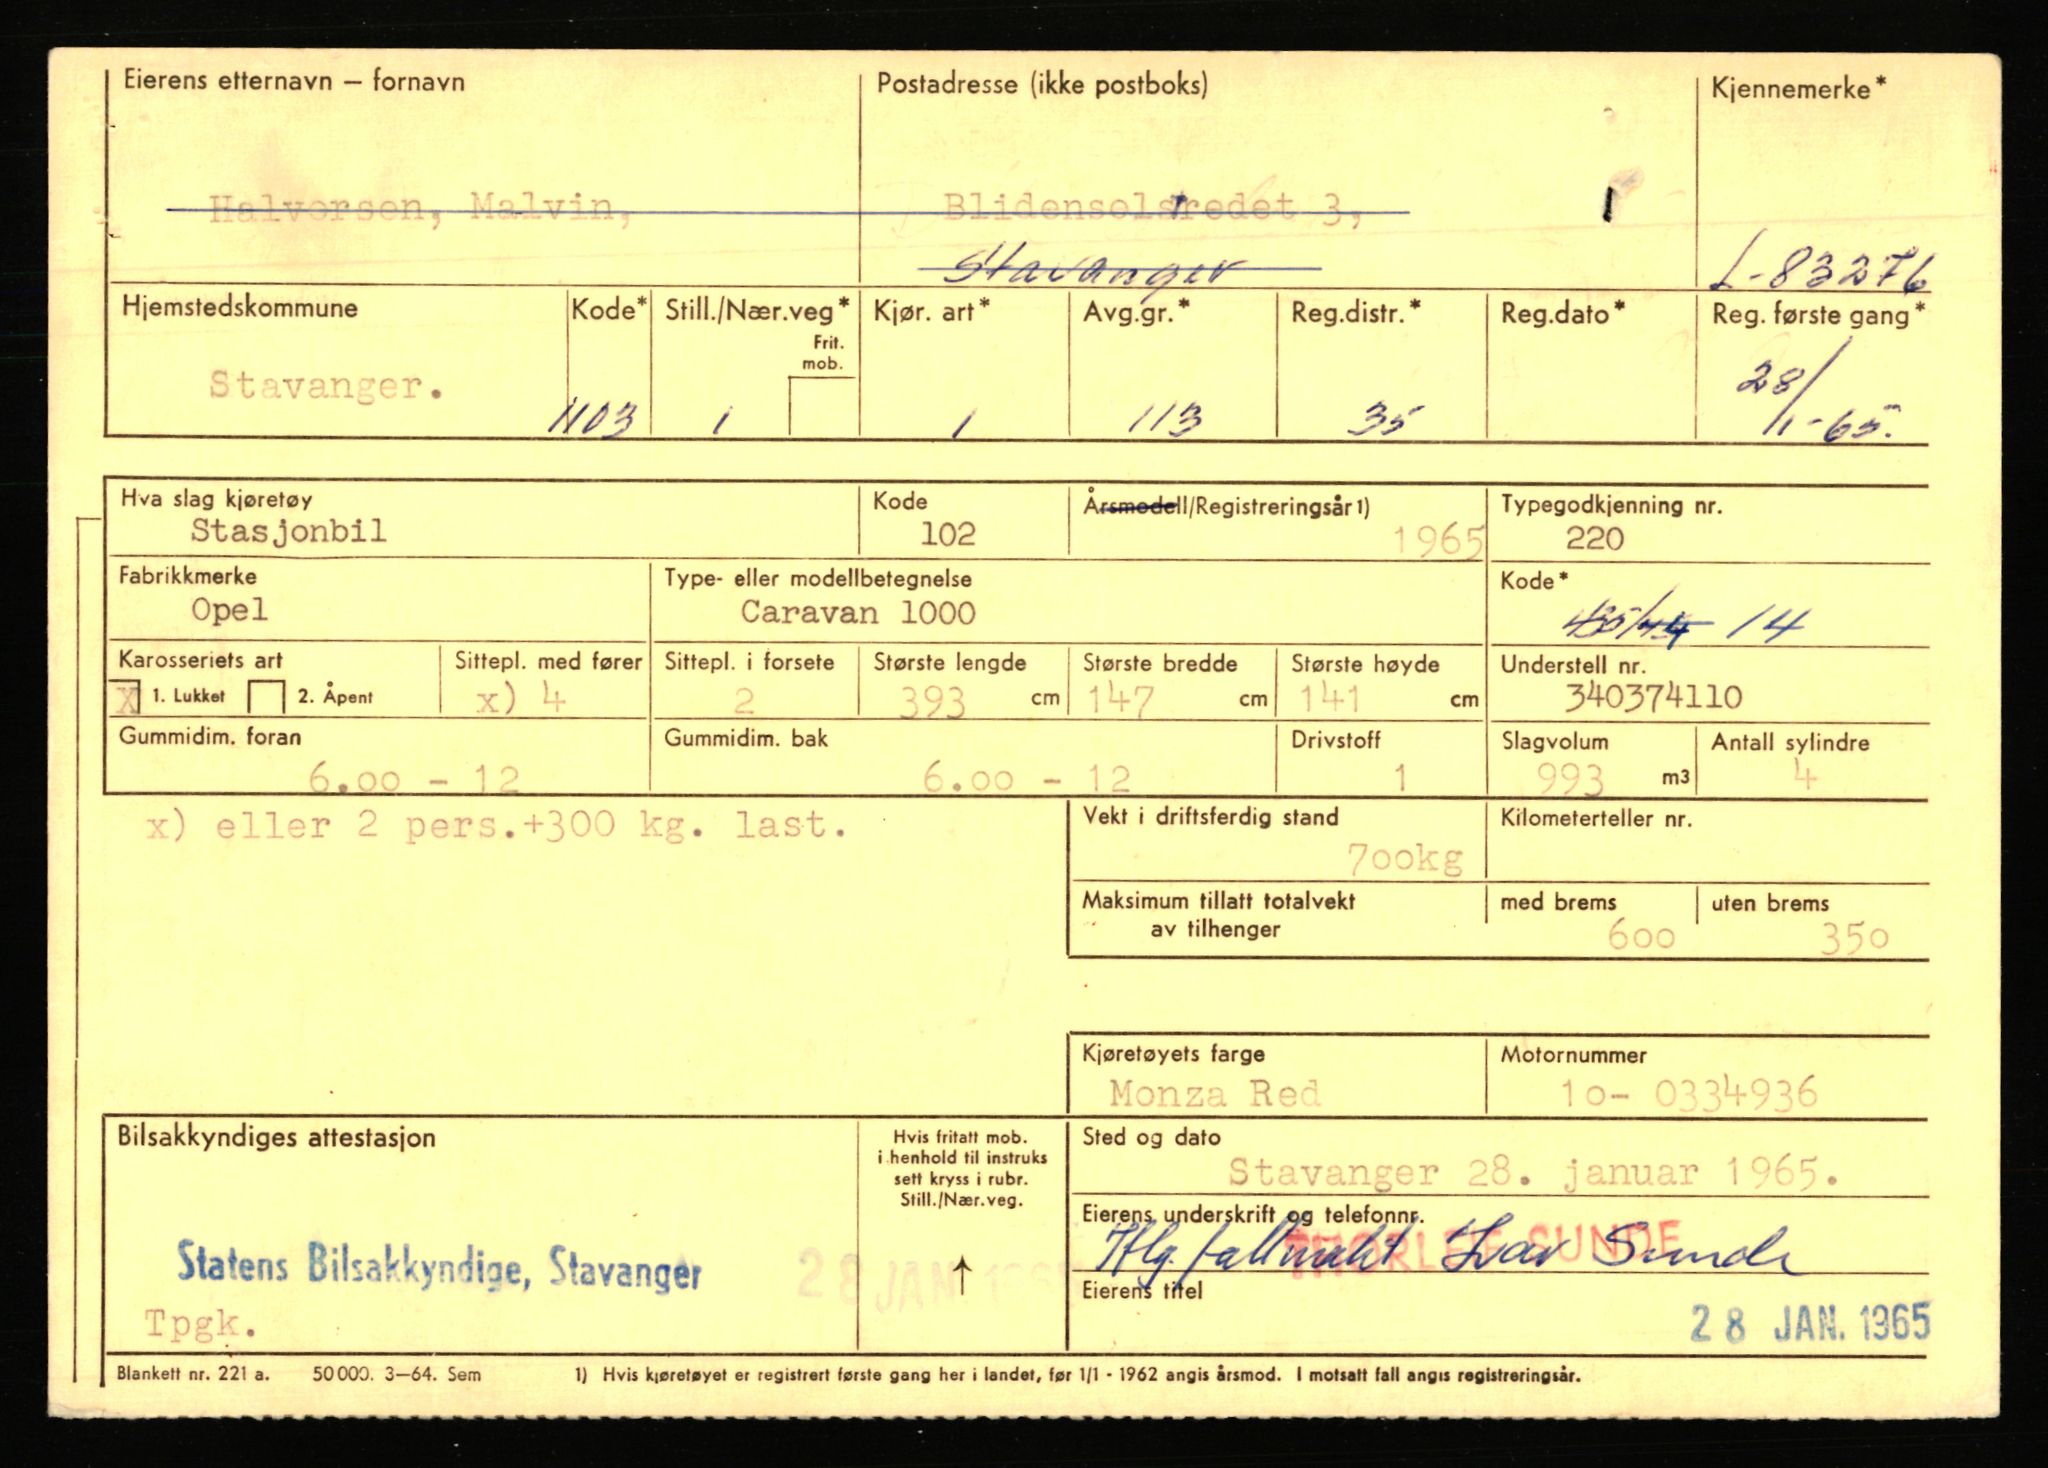 Eierens etternavn – fornavn Postadresse (ikke postboks) Kjennemerke*
Halvorsen, Malvin, Blidensolstredet 3,
Stavanger L-83276
Hjemstedskommune Kode* Still./Nær.veg* Kjør. art* Avg.gr.* Reg.distr.* Reg.dato* Reg. første gang*
Frit.
mob.
Stavanger. 1103 1 1 113 35 28/1-65.
Hva slag kjøretøy Kode Årsmodell/Registreringsår 1) Typegodkjenning nr.
Stasjonbil 102 1965 220
Fabrikkmerke Type- eller modellbetegnelse Kode*
Opel Caravan 1000 14
Karosseriets art Sittepl. med fører Sittepl. i forsete Største lengde Største bredde Største høyde Understell nr.
X 1. Lukket 2. Åpent x) 4 2 393 cm 147 cm 141 cm 340374110
Gummidim. foran Gummidim. bak Drivstoff Slagvolum Antall sylindre
6.00 - 12 6.00 - 12 1 993 m3 4
x) eller 2 pers.+300 kg. last. Vekt i driftsferdig stand Kilometerteller nr.
700kg
Maksimum tillatt totalvekt med brems uten brems
av tilhenger 600 350
Kjøretøyets farge Motornummer
Monza Red 10- 0334936
Bilsakkyndiges attestasjon Hvis fritatt mob. Sted og dato
i henhold til instruks
sett kryss i rubr.
Still./Nær.veg.
Stavanger 28. januar 1965.
Eierens underskrift og telefonnr.
THORLEIF SUNDE
Iflg. fullmakt Ivar Sunde
Statens Bilsakkyndige, Stavanger 28 JAN. 1965 ↑
Eierens titel
Tpgk. 28 JAN. 1965
Blankett nr. 221 a. 50 000. 3–64. Sem 1) Hvis kjøretøyet er registrert første gang her i landet, før 1/1 - 1962 angis årsmod. I motsatt fall angis registreringsår.